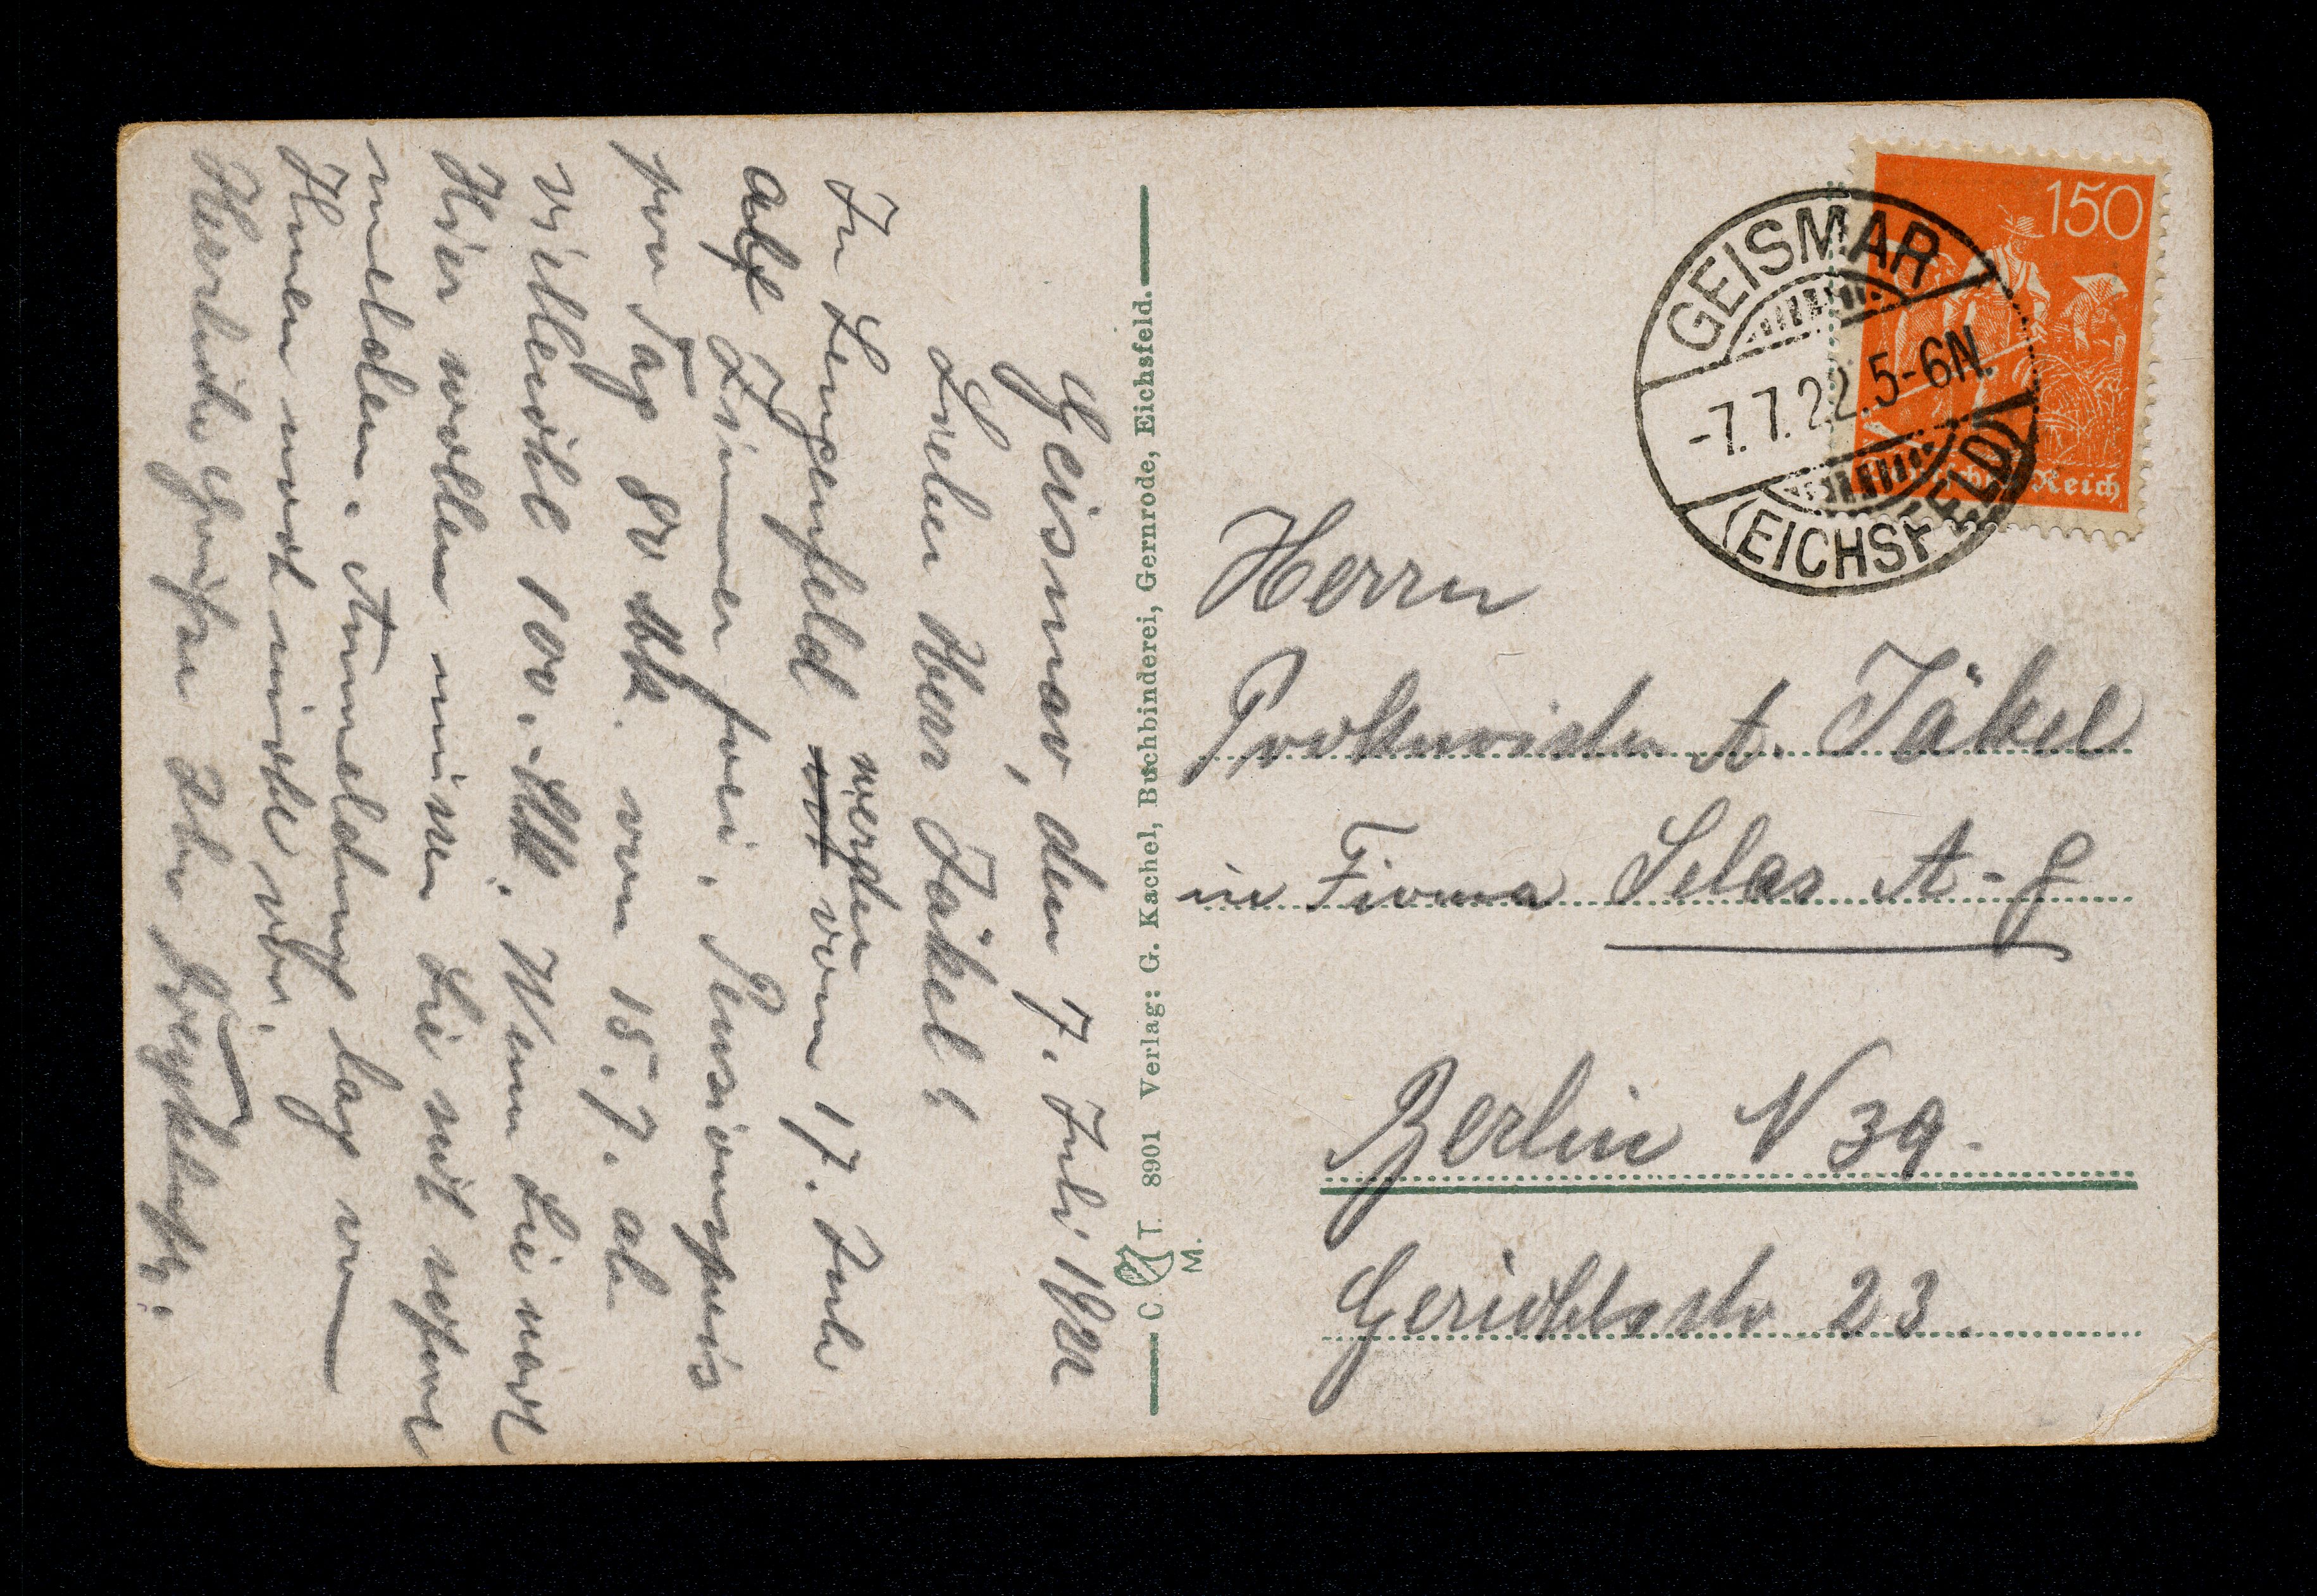 Geismar, den 7. Juli 1922
Lieber Herr Jäkel!
In Lengenfeld werden vom 17. Juli
ab Zimmer frei. Pensionspreis
pro Tag 80 Mk. vom 15.7. ab
vielleicht 100.-Mk. Wenn Sie nach
Hier wollen müssen Sie sich sofort
melden. Anmeldung lag von
Ihnen noch nicht vor.
Herzliche Grüße Ihr
C. T. M. 8901 Verlag: G. Kachel, Buchbinderei, Gernrode, Eichsfeld.
150
Reich
GEISMAR
-7.7.22.5-6N.
(EICHSFELD)
Herrn
Prokuristen A. Jäkel
in Firma Selas A-G
Berlin N 39.
Gerichtsstr 23.